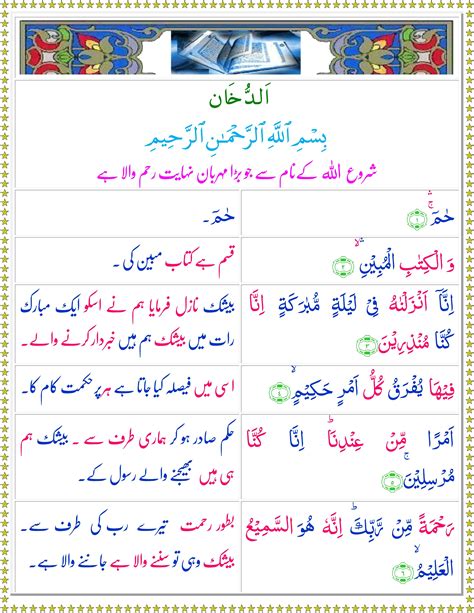 اَلدُّخَان
بِسْمِ ٱللَّهِ ٱلرَّحْمَٰنِ ٱلرَّحِيمِ
شروع الله کےنام سے جو بڑا مہربان نہایت رحم والا ہے
حٰمٓ ۚ ۛ ﴿۱﴾
حٰمٓ۔
وَ الْكِتٰبِ الْمُبِيْنِ ۙ ۛ ﴿۲﴾
قسم ہے کتاب مبین کی۔
اِنَّاۤ اَنْزَلْنٰهُ فِيْ لَيْلَةٍ مُّبٰرَكَةٍ اِنَّا
كُنَّا مُنْذِرِيْنَ ﴿۳﴾
بیشک نازل فرمایا ہم نے اسکو ایک مبارک
رات میں بیشک ہم ہیں خبردار کرنے والے۔
فِيْهَا يُفْرَقُ كُلُّ اَمْرٍ حَكِيْمٍ ۙ ﴿۴﴾
اسی میں فیصلہ کیا جاتا ہے ہر پر حکمت کام کا۔
اَمْرًا مِّنْ عِنْدِنَا ؕ اِنَّا كُنَّا
مُرْسِلِيْنَ ۚ ﴿۵﴾
حکم صادر ہو کر ہماری طرف سے ۔ بیشک ہم
ہی ہیں بھیجنے والے رسول کے۔
رَحْمَةً مِّنْ رَّبِّكَ ؕ اِنَّهٗ هُوَ السَّمِيْعُ
الْعَلِيْمُ ۙ ﴿۶﴾
بطور رحمت تیرے رب کی طرف سے۔
بیشک وہی تو سننے والا ہے جاننے والا ہے۔